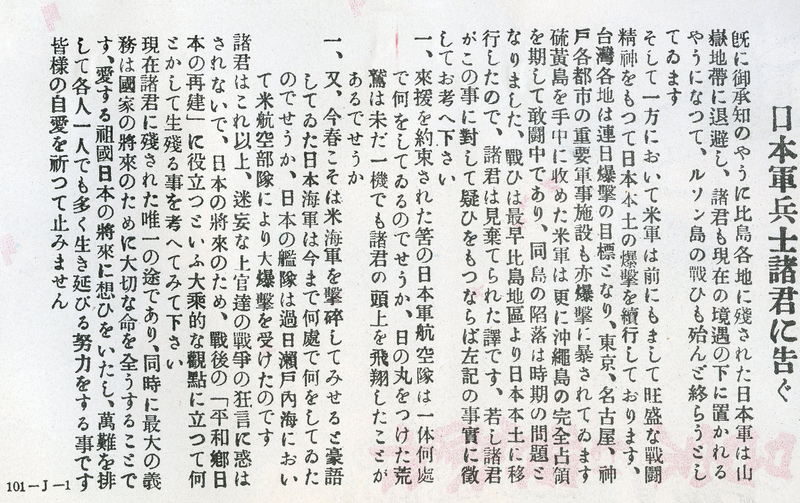 日本軍兵士諸君に告ぐ
既に御承知のやうに比島各地に殘された日本軍は山
嶽地帶に退避し、諸君も現在の境遇の下に置かれる
やうになつて、ルソン島の戰ひも殆んど終らうとし
てゐます
そして一方において米軍は前にもまして旺盛な戰鬪
精神をもつて日本本土の爆擊を續行しております、
台灣各地は連日爆擊の目標となり、東京、名古屋、神
戶各都市の重要軍事施設も亦爆擊に暴されてゐます
硫黃島を手中に收めた米軍は更に沖繩島の完全占領
を期して敢鬪中であり、同島の陷落は時期の問題と
なりました、戰ひは最早比島地區より日本本土に移
行したので、諸君は見棄てられた譯です、若し諸君
がこの事に對して疑ひをもつならば左記の事實に徵
してお考へ下さい
一、來援を約束された筈の日本軍航空隊は一体何處
で何をしてゐるのでせうか、日の丸をつけた荒
鷲は未だ一機でも諸君の頭上を飛翔したことが
あるでせうか
一、又、今春こそは米海軍を擊碎してみせると豪語
してゐた日本海軍は今まで何處で何をしてゐた
のでせうか、日本の艦隊は過日瀨戶內海におい
て米航空部隊により大爆擊を受けたのです
諸君はこれ以上、迷妄な上官達の戰爭の狂言に惑は
されないで、日本の將來のため、戰後の「平和鄕日
本の再建」に役立つといふ大乘的な觀點に立つて何
とかして生殘る事を考へてみて下さい
現在諸君に殘された唯一の途であり、同時に最大の義
務は國家の將來のために大切な命を全うすることで
す、愛する祖國日本の將來に想ひをいたし、萬難を排
して各人一人でも多く生き延びる努力をする事です
皆樣の自愛を祈つて止みません
101-J-1